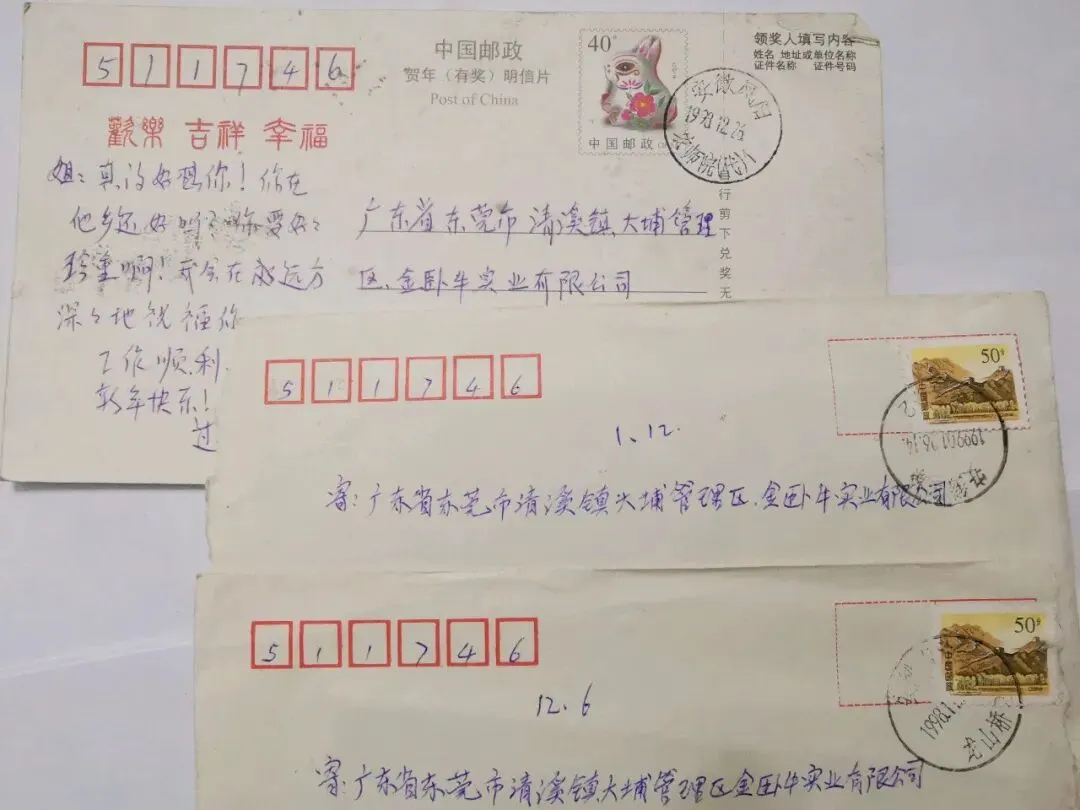 511746
中国邮政
贺年（有奖）明信片
Post of China
40分
中国邮政
领奖人填写内容
姓名 地址或单位名称
证件名称 证件号码
1998.12.25
行剪下兑奖无
歡樂 吉祥 幸福
姐：真的好想你！你在
他乡还好吗？你要好好
珍重啊！我会在永远方
深深地祝福你
工作顺利
新年快乐！
过
广东省东莞市清溪镇大埔管理
区金卧牛实业有限公司
511746
50分
1.12.
寄：广东省东莞市清溪镇大埔管理区.金卧牛实业有限公司
511746
50分
12.6
寄：广东省东莞市清溪镇大埔管理区金卧牛实业有限公司